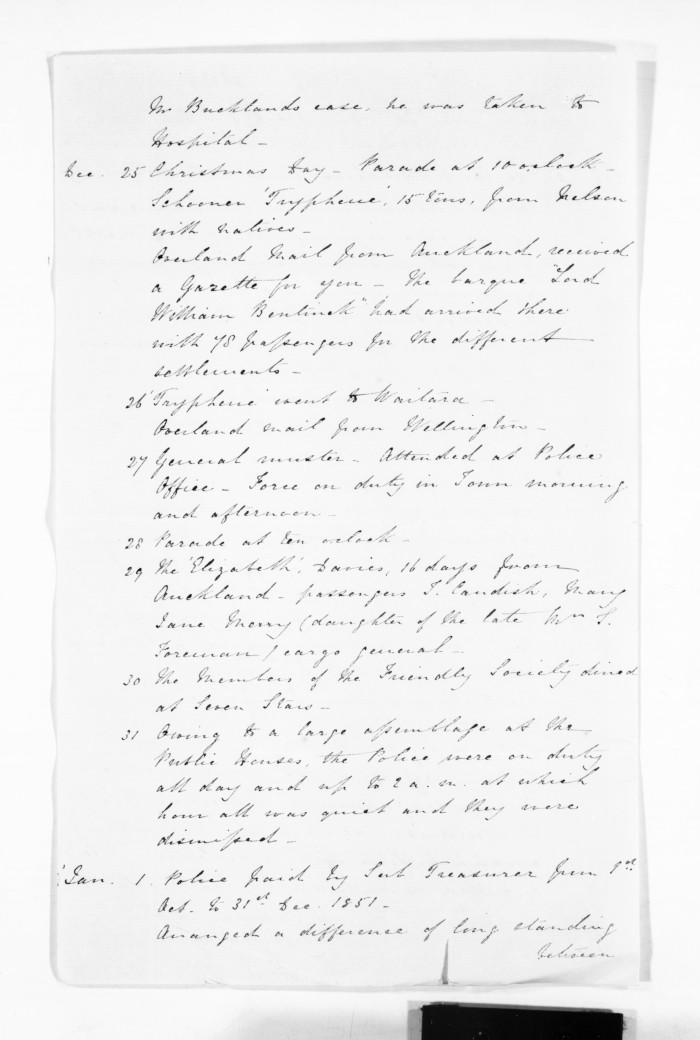 Mr Bucklands case, he was taken to
Hospital –
Dec. 25 Christmas Day – Parade at 10 o'clock –
Schooner 'Tryphene', 15 tons, from Nelson
with natives –
Overland Mail from Auckland, received
a Gazette for you – The barque "Lord
William Bentinck" had arrived there
with 78 passengers for the different
settlements –
26 'Tryphene' went to Waitara –
Overland mail from Wellington –
27 General muster – Attended at Police
Office – Force on duty in Town morning
and afternoon –
28 Parade at ten o'clock –
29 The 'Elizabeth', Davies, 16 days from
Auckland – passengers J. Candish, Mary
Jane Merry (daughter of the late Wm S.
Foreman) cargo general –
30 The Members of the Friendly Society dined
at Seven Stars –
31 Owing to a large assemblage at the
Public Houses, the Police were on duty
all day and up to 2 a.m. at which
hour all was quiet and they were
dismissed –
Jan. 1. Police paid by Sub Treasurer from 1st
Oct. to 31st Dec. 1851 –
Arranged a difference of long standing
between